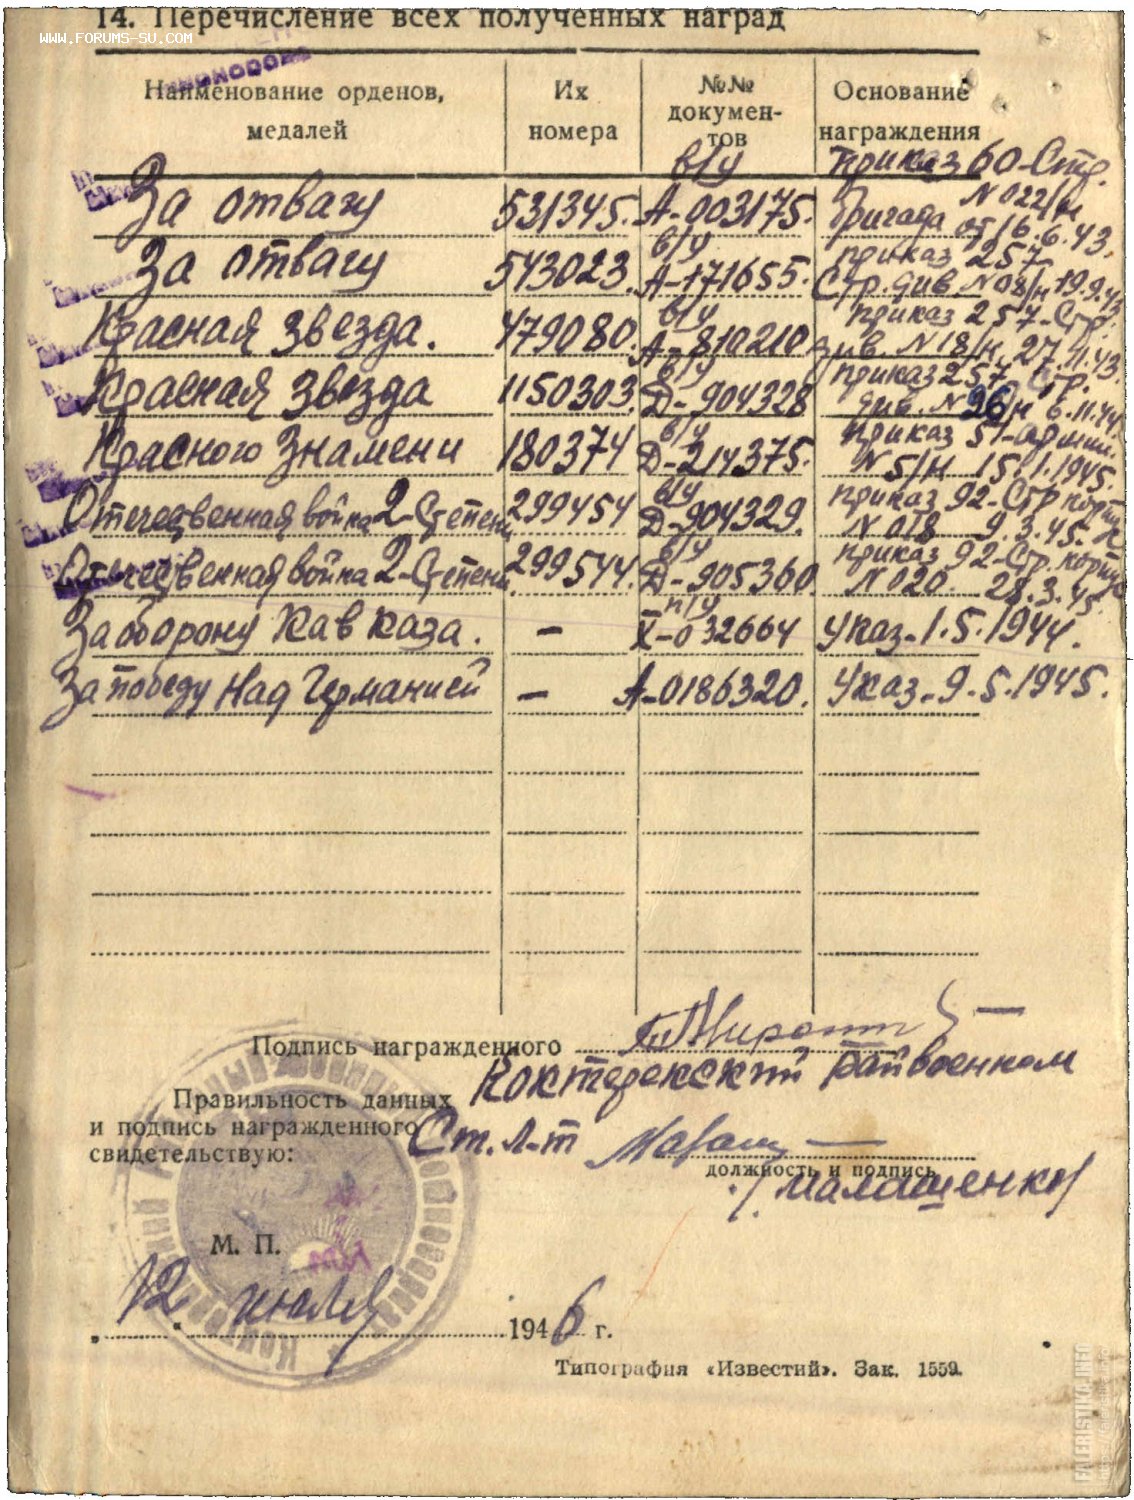 14. Перечисление всех полученных наград
WWW.FORUMS-SU.COM
Наименование орденов, медалей | Их номера | №№ докумен-тов | Основание награждения
За отвагу | 531345. | в/у А-003175. | приказ 60-Стр. бригада N 022/н от 16.6.43.
За отвагу | 543023. | в/у А-171655. | приказ 257 Стр. див. N 08/н 19.9.43
Красная звезда. | 479080. | в/у А-810210 | приказ 257-Стр. див. N 18/н. 27.11.43.
Красная звезда | 1150303. | в/у Д-904328 | приказ 257 Стр. див. N 96/н 6.11.44.
Красного Знамени | 180374 | в/у Д-214375. | приказ 51-армии. N 5/н 15.1.1945.
Отечественная война 2-Степени | 299454 | в/у Д-904329. | приказ 92-Стр корпуса N 018 9.3.45.
Отечественная война 2-Степени. | 299544. | в/у Д-905360. | приказ 92-Стр. корпуса N 020 28.3.45.
За оборону Кавказа. | – | п/у X-032664 | Указ-1.5.1944.
За победу Над Германией | – | А-0186320. | Указ-9.5.1945.
Подпись награжденного
Коктерекский Райвоенком
Правильность данных
и подпись награжденного
свидетельствую:
Ст. л-т
должность и подпись
/Малашенко/
М. П.
„12“ июля 1946 г.
Типография «Известий». Зак. 1559.
FALERISTIKA.INFO